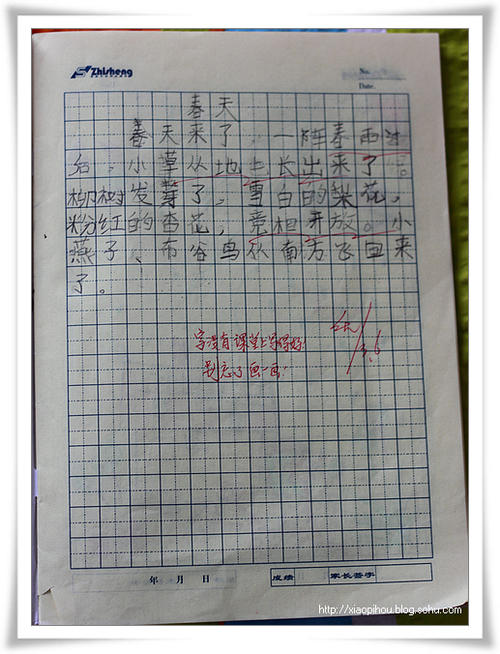 Zhisheng
No.
Date.
春天
春天来了，一阵春雨过
后，小草从地上长出来了。
柳树发芽了，雪白的梨花，
粉红的杏花，竞相开放。小
燕子、布谷鸟从南方飞回来
了。
字没有课堂上写得好!
别忘了画一画!
3.6
年 月 日 成绩 家长签字
http://xiaopihou.blog.sohu.com